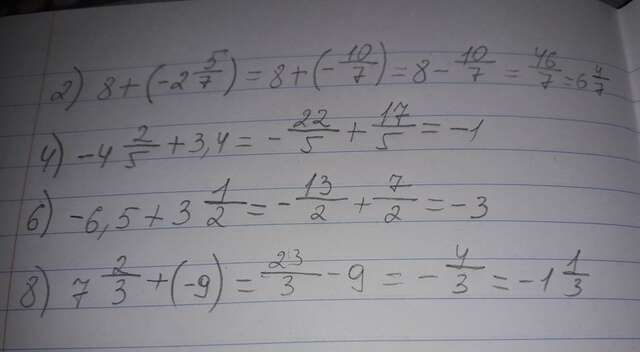 2) 8 + (-2 5/7) = 8 + (-10/7) = 8 - 10/7 = 46/7 = 6 4/7
4) -4 2/5 + 3,4 = -22/5 + 17/5 = -1
6) -6,5 + 3 1/2 = -13/2 + 7/2 = -3
8) 7 2/3 + (-9) = 23/3 - 9 = -4/3 = -1 1/3